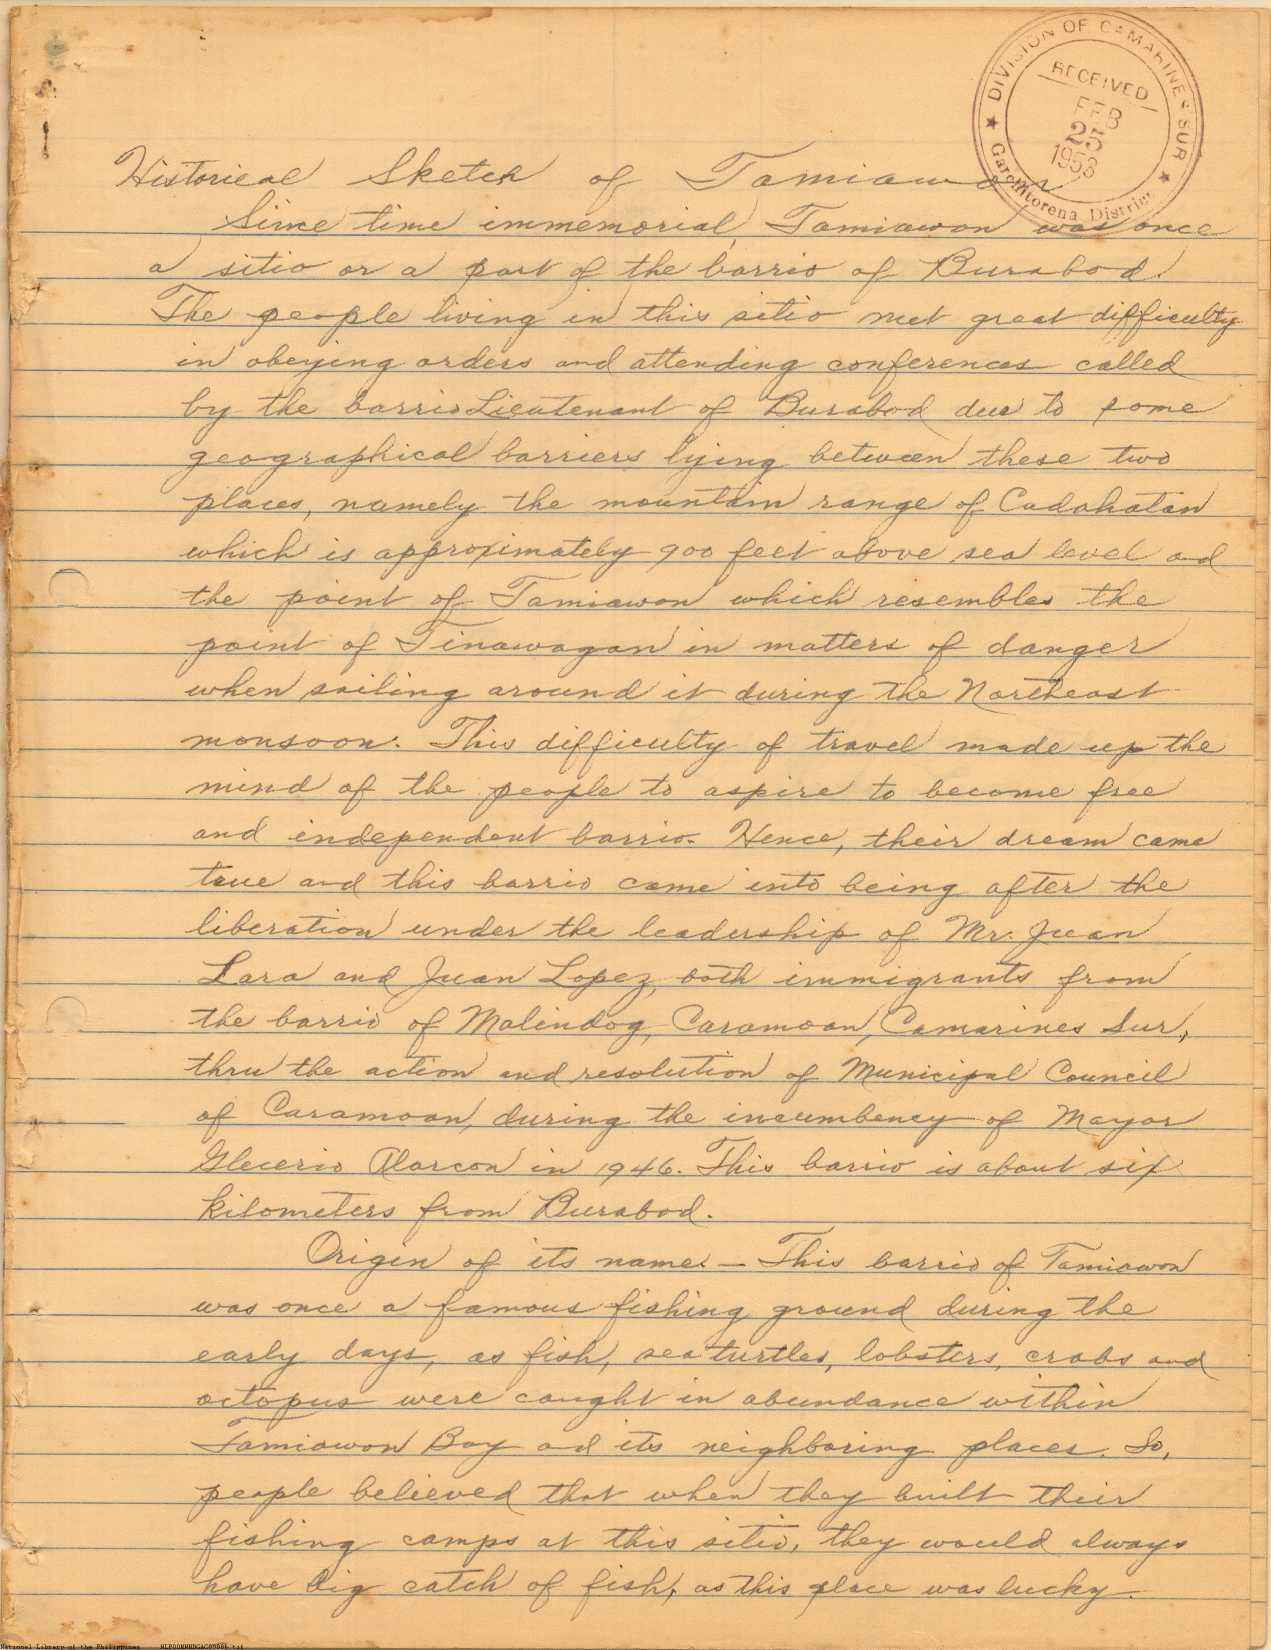 DIVISION OF CAMARINES SUR
RECEIVED
FEB
25
1953
Garchitorena District
Historical Sketch of Tamiawon
Since time immemorial, Tamiawon was once
a sitio or a part of the barrio of Burabod.
The people living in this sitio met great difficulty
in obeying orders and attending conferences called
by the barrio Lieutenant of Burabod due to some
geographical barriers lying between these two
places, namely the mountain range of Cadahatan
which is approximately 900 feet above sea level and
the point of Tamiawon which resembles the
point of Tinawagan in matters of danger
when sailing around it during the Northeast
monsoon. This difficulty of travel made up the
mind of the people to aspire to become free
and independent barrio. Hence, their dream came
true and this barrio came into being after the
liberation under the leadership of Mr. Juan
Lara and Juan Lopez, both immigrants from
the barrio of Malindog, Caramoan, Camarines Sur,
thru the action and resolution of Municipal Council
of Caramoan, during the incumbency of Mayor
Glecerio Alarcon in 1946. This barrio is about six
kilometers from Burabod.
Origin of its name. — This barrio of Tamiawon
was once a famous fishing ground during the
early days, as fish, sea turtles, lobsters, crabs and
octopus were caught in abundance within
Tamiawon Bay and its neighboring places. So,
people believed that when they built their
fishing camps at this sitio, they would always
have big catch of fish, as this place was lucky.
National Library of the Philippines